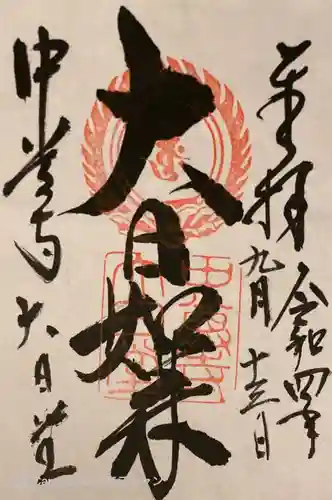 奉拝
令和四年
九月十三日
大日如来
中尊寺大日堂